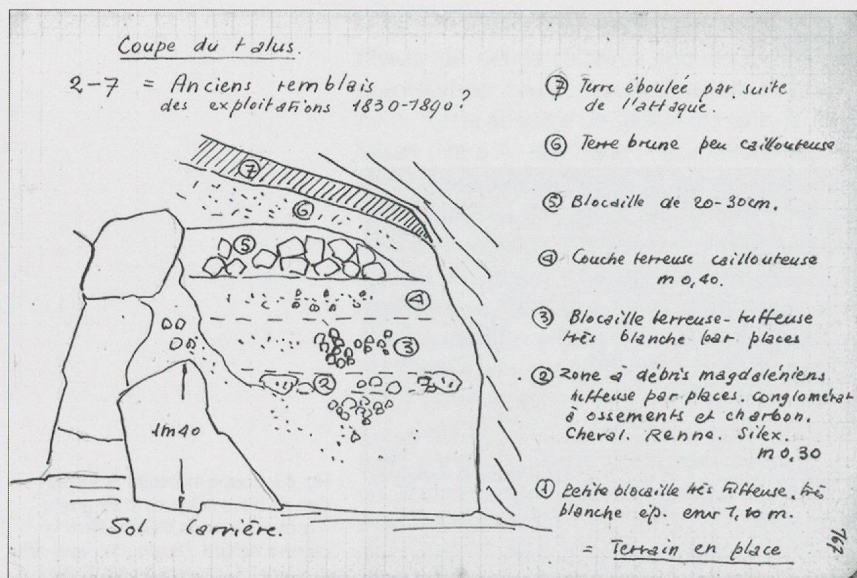 Coupe du talus.
2-7 = Anciens remblais
des exploitations 1830-1890?
⑦ Terre éboulée par suite
de l'attaque.
⑥ Terre brune peu caillouteuse
⑤ Blocaille de 20-30cm.
④ Couche terreuse caillouteuse
m 0,40.
③ Blocaille terreuse-tuffeuse
très blanche par places
② Zone à débris magdaléniens
tuffeuse par places. conglomérat
à ossements et charbon.
Cheval. Renne. Silex.
m 0,30
① Petite blocaille très tuffeuse, très
blanche ép. env 1,10 m.
= Terrain en place
⑦
⑥
⑤
④
③
②
1m40
Sol Carrière.
767